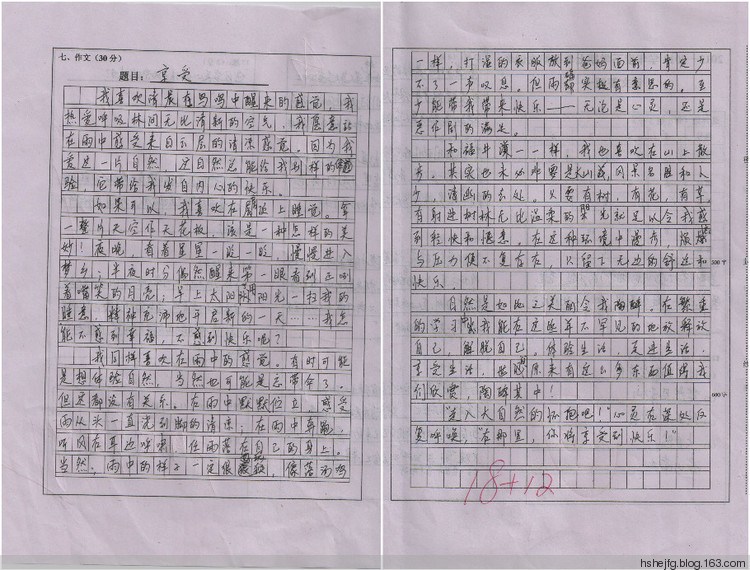 七、作文(30分)
题目： 享受
我喜欢清晨在鸟鸣中醒来的感觉，我
热爱呼吸林间无比清新的空气，我愿意站
在雨中感受来自云层的清凉感觉。因为我
爱这一片自然，这自然总能给我别样的体
验，它带给我发自内心的快乐。
如果可以，我喜欢在屋顶上睡觉。拿
一整片天空作天花板，该是一种怎样的美
妙！夜晚，有着星星一眨一眨，慢慢进入
梦乡；半夜时分偶然醒来第一眼看到正咧
着嘴笑的月亮；早上太阳用阳光一扫我的
睡意，精神充沛地开启新的一天……我怎
能不感到幸福，不感到快乐呢？
我同样喜欢在雨中的感觉。有时可能
是想体验自然，当然也可能是忘带伞了。
但是都没有关系。在雨中默默伫立，感受
雨从头一直浇到脚的清凉；在雨中奔跑，
听风在耳边呼啸，任雨落在自己的身上。
当然，雨中的样子一定很狼狈，像落汤鸡
一样，打湿的衣服放到爸妈面前，肯定少
不了一声叹息。但雨确实挺有意思的。至
少能带我带来快乐——无论是心灵，还是
恶作剧的满足。
和福井漠一一样，我也喜欢在山上散
步。其实也未必非要是大山或风景名胜和人
少，清幽的去处。只要有树，有花，有草，
有射进树林无比温柔的阳光就足以令我感
到轻快和惬意。在这种环境中漫步，烦恼
与压力便不复存在，只留下无边的舒适和
快乐。
自然是如此之美的令我陶醉。在繁重
的学习中我能在这些并不罕见的地放释放
自己，解脱自己。体验生活，走进生活，
享受生活，我想原来有这么多东西值得我
们欣赏，陶醉其中！
“走入大自然的怀抱吧！”心灵在深处反
复呼唤，“在那里，你将享受到快乐！”
300字
600字
18+12
hshejfg.blog.163.com